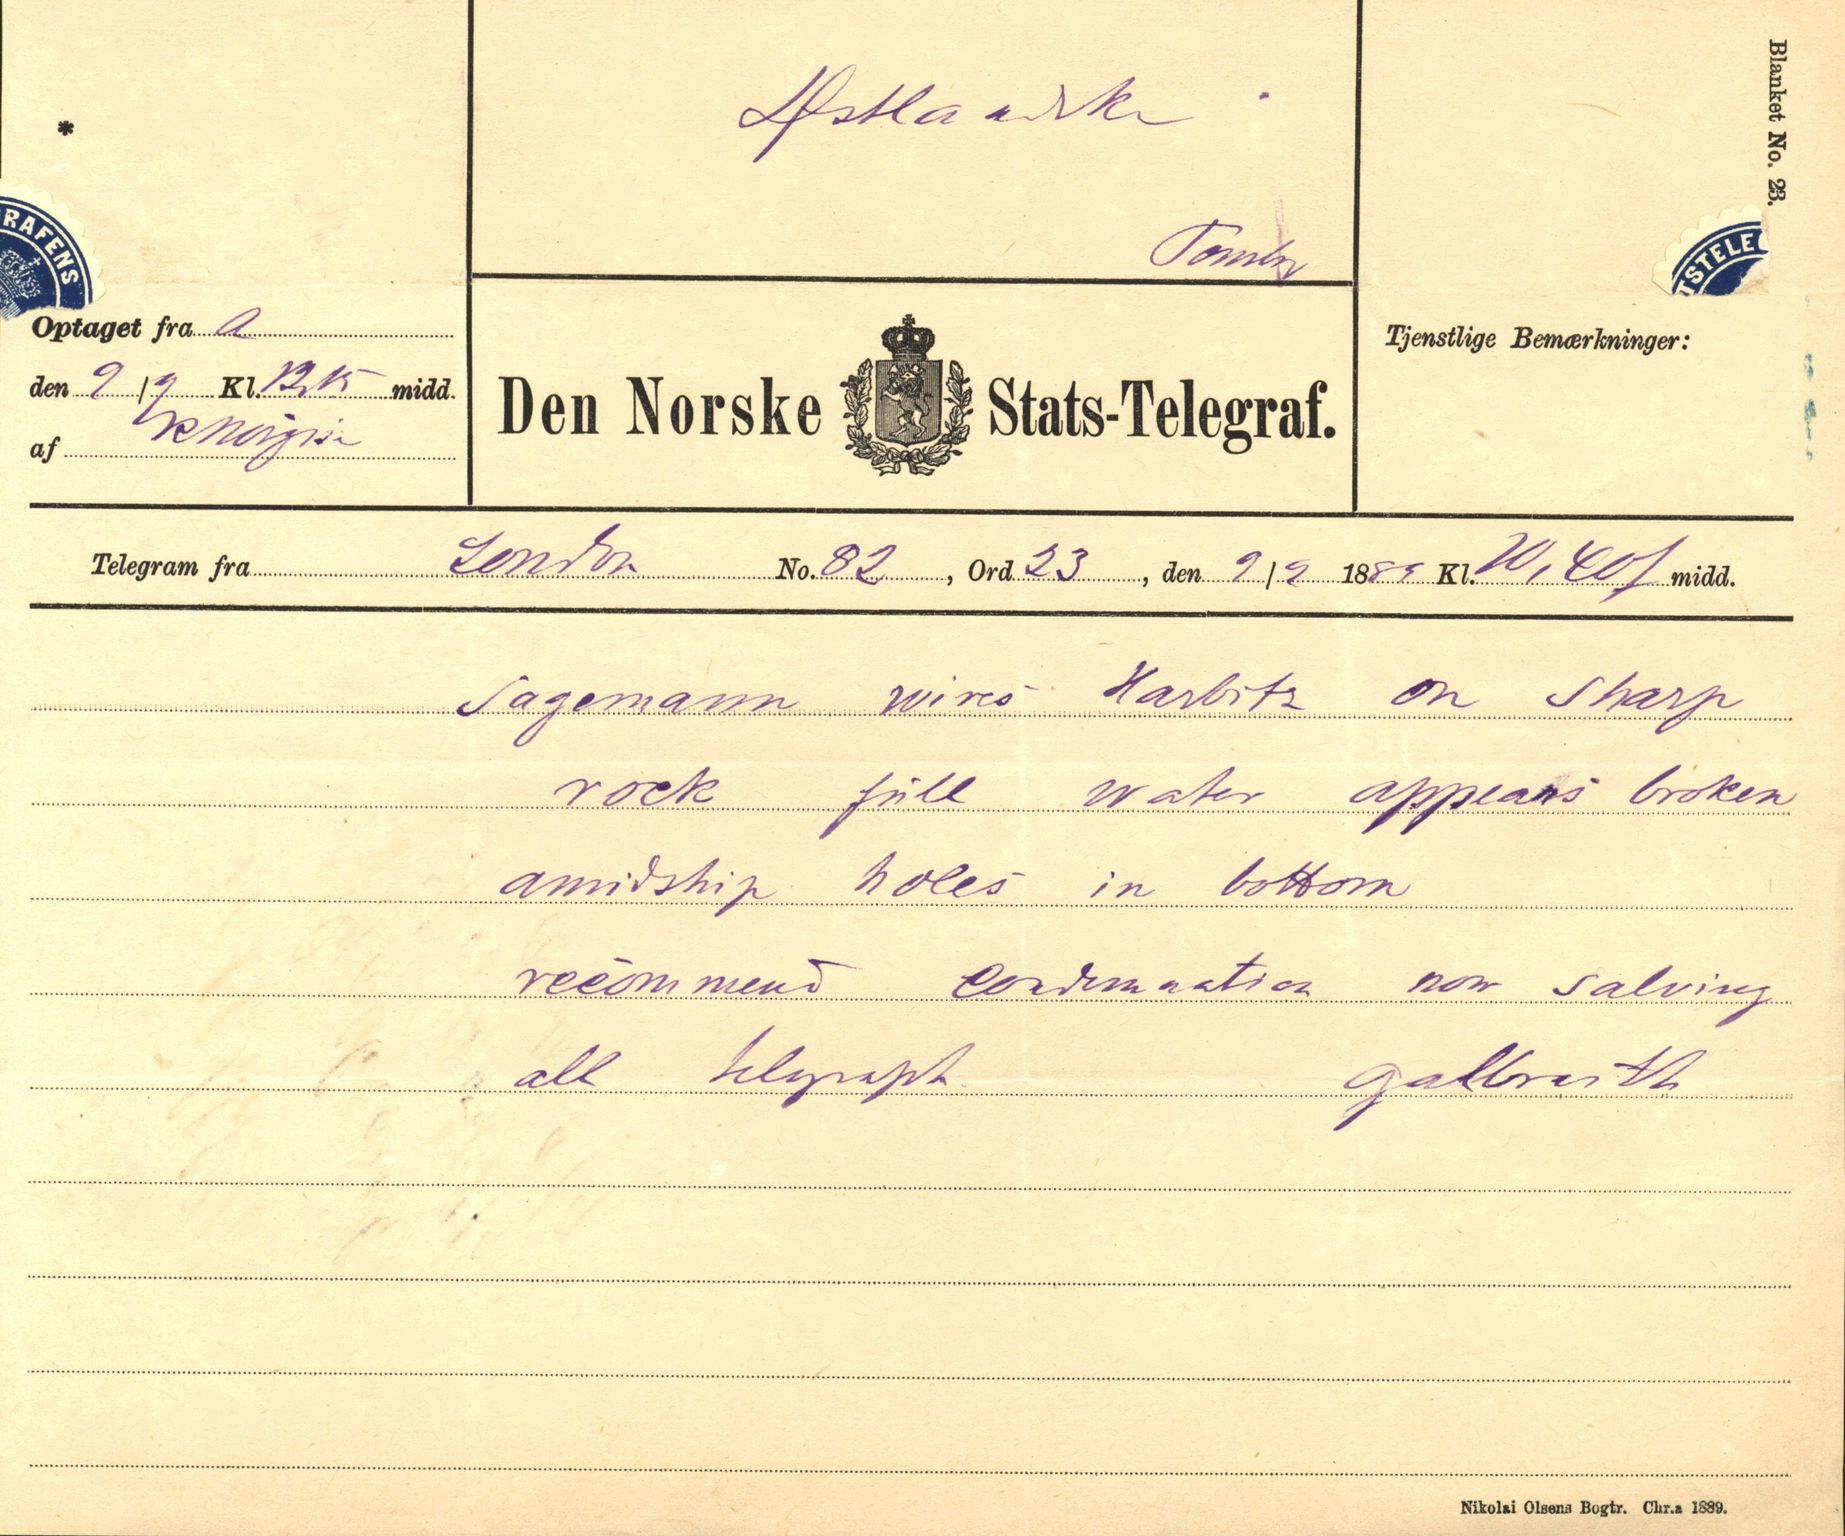 Blanket No. 23.
*
RAFENS
TSTELE
Optaget fra a
den 9/9 Kl. 12,15 midd.
af
Den Norske Stats-Telegraf.
Tjenstlige Bemærkninger:
Telegram fra London No. 82, Ord 23, den 9/9 1889 Kl. midd.
Sagemann wires Harbitz on sharp
rock full water appears broken
amidship holes in bottom
recommend condemnation now salving
all telegraph Galbraith
Nikolai Olsens Bogtr. Chr.a 1889.